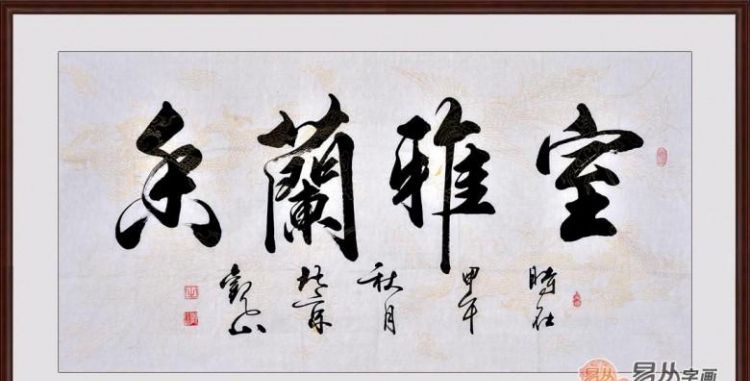 室雅蘭香
時在甲午秋月北京觀山
易从字画